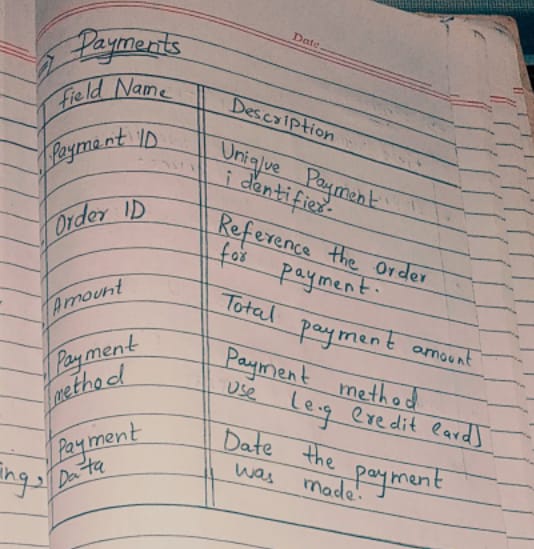 Date
Payments
Field Name Description
Payment ID Uniqlue Payment
identifier.
Order ID Reference the Order
for payment.
Amount Total payment amount
Payment Payment method
method use (e.g Credit Card)
Payment Date the payment
Data was made.
ing,